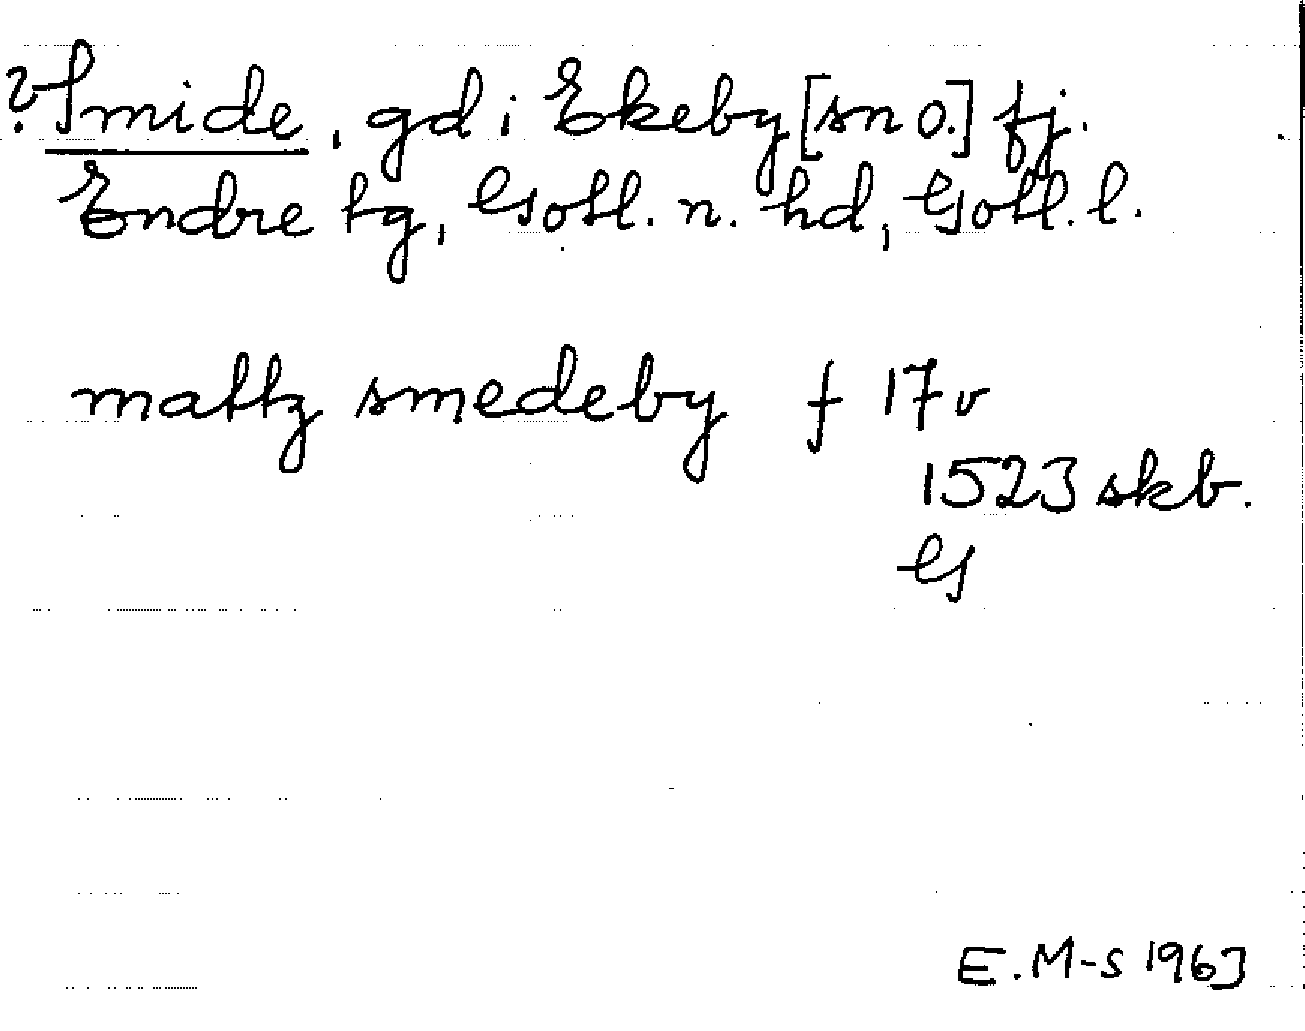 ? Smide, gd i Ekeby [sn o.] fj.
Endre tg, Gotl. n. hd, Gotl. l.
mattz smedeby f 17 v
1523 skb.
G
E. M-S 1963